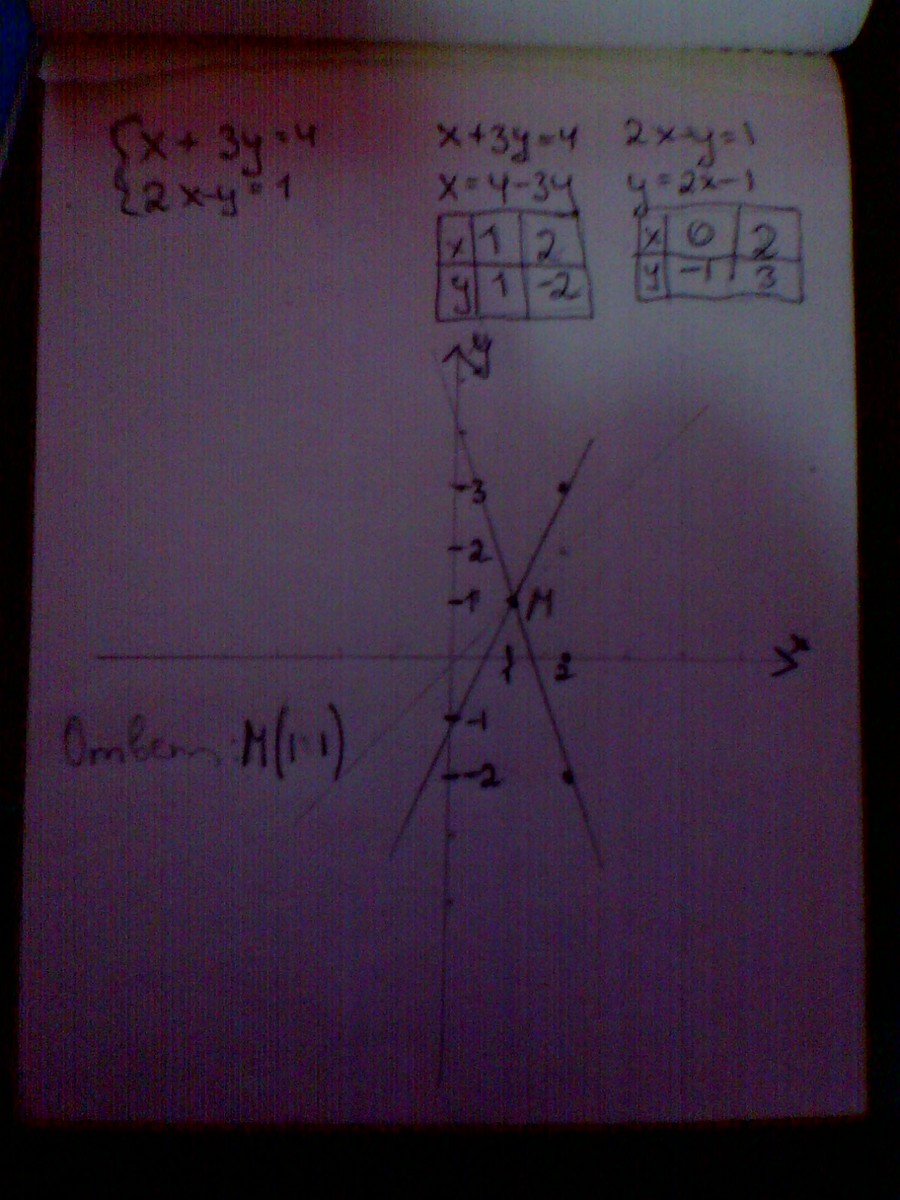 {x + 3y = 4
{2x-y = 1
x+3y=4
x = 4-3y
x 1 2
y 1 -2
2x-y=1
y=2x-1
x 0 2
y -1 3
y
3
2
1
M
1 2
x
-1
-2
Ответ: M(1;1)